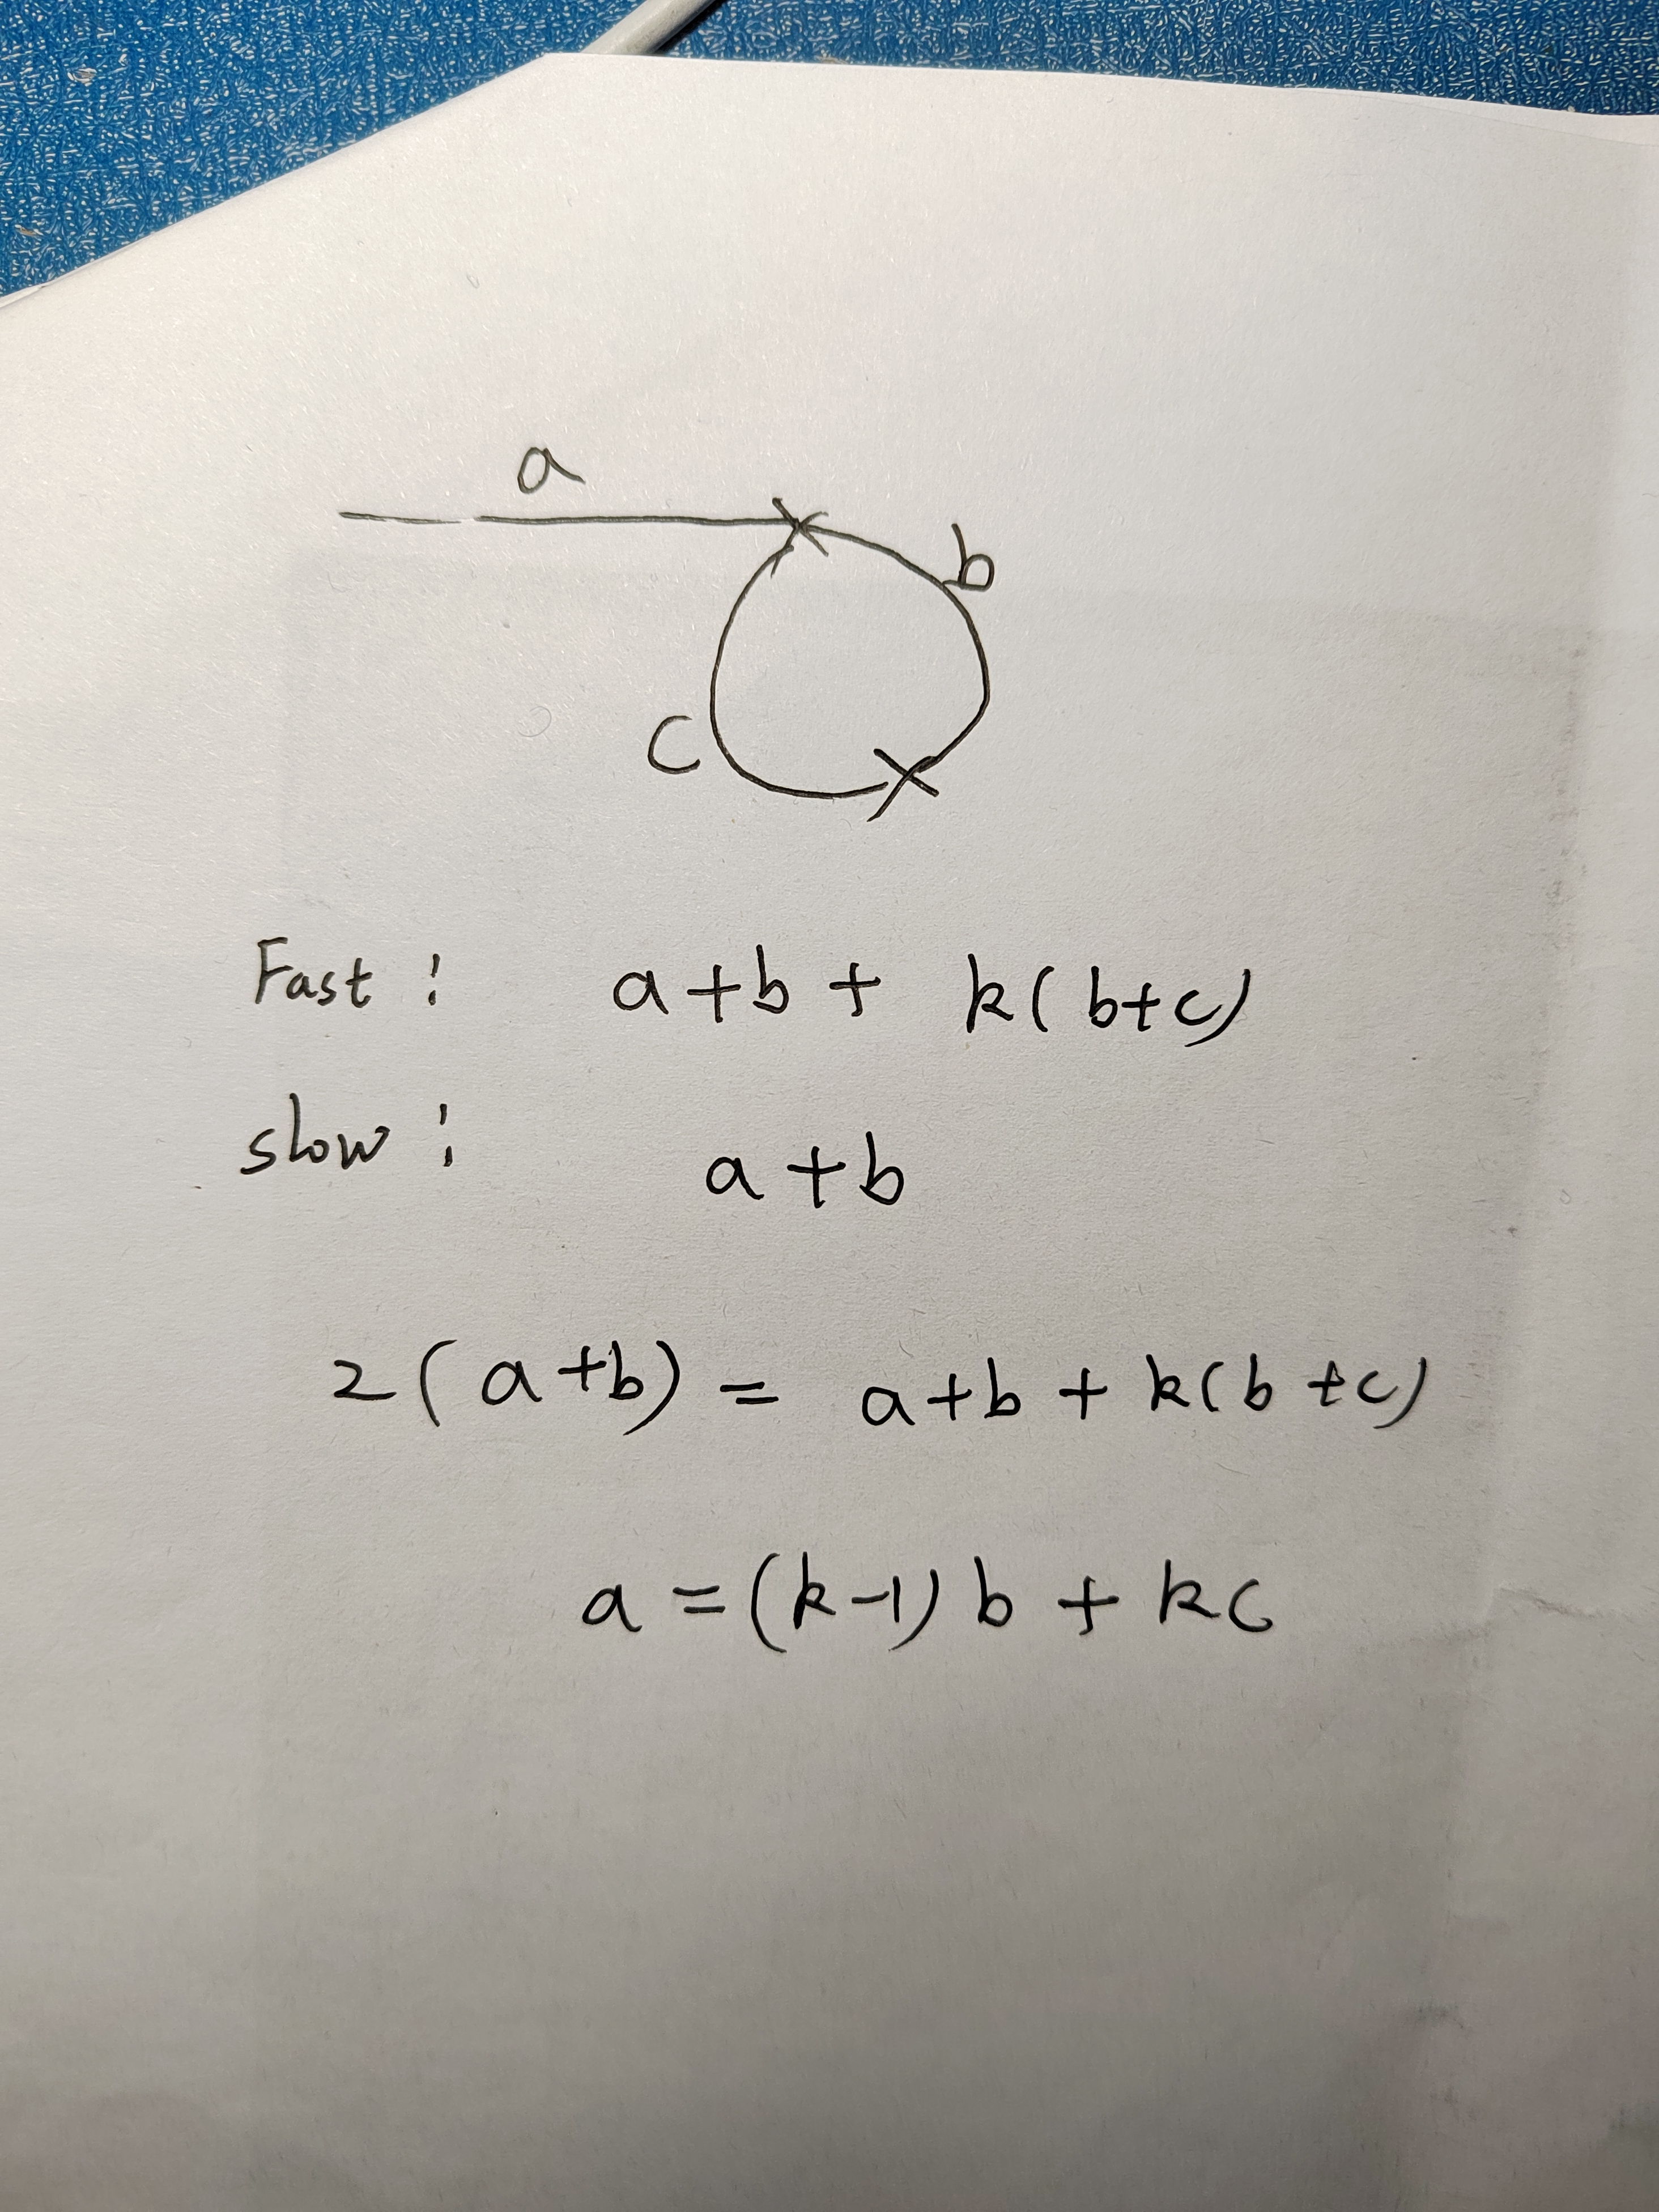 a
b
c
Fast: a+b+ k(b+c)
slow: a+b
2(a+b) = a+b+k(b+c)
a=(k-1)b+kc